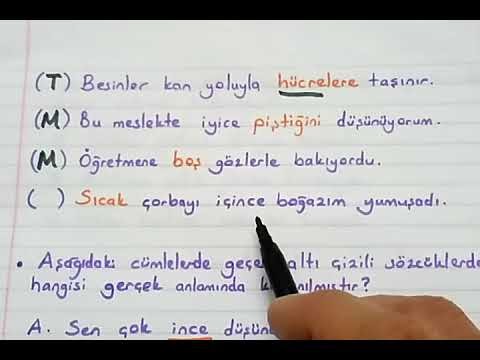 (T) Besinler kan yoluyla hücrelere taşınır.
(M) Bu meslekte iyice piştiğini düşünüyorum.
(M) Öğretmene boş gözlerle bakıyordu.
( ) Sıcak çorbayı içince boğazım yumuşadı.
• Aşağıdaki cümlelerde geçen altı çizili sözcüklerden
hangisi gerçek anlamında kullanılmıştır?
A. Sen çok ince